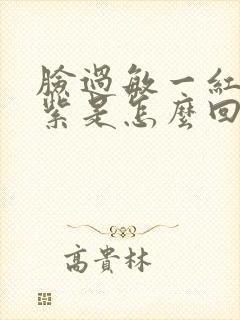 臉過敏一紅
紫是怎麼回
高貴林